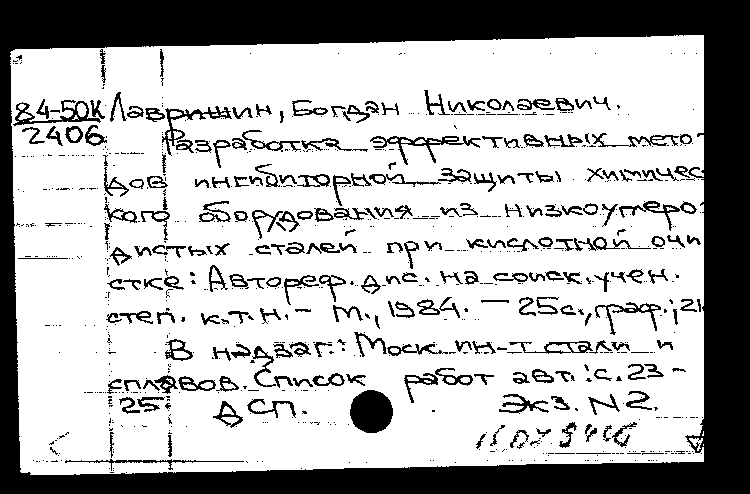 84-50К Лавришин, Богдан Николаевич.
2406 Разработка эффективных мето-
дов ингибиторной защиты химичес-
кого оборудования из низкоуглеро-
дистых сталей при кислотной очи
стке: Автореф. дис. на соиск. учен.
степ. к.т.н. - М., 1984. - 25с., граф.; 21
В надзаг.: Моск. ин-т стали и
сплавов. Список работ авт.: с. 23-
25. ДСП. Экз. N2.